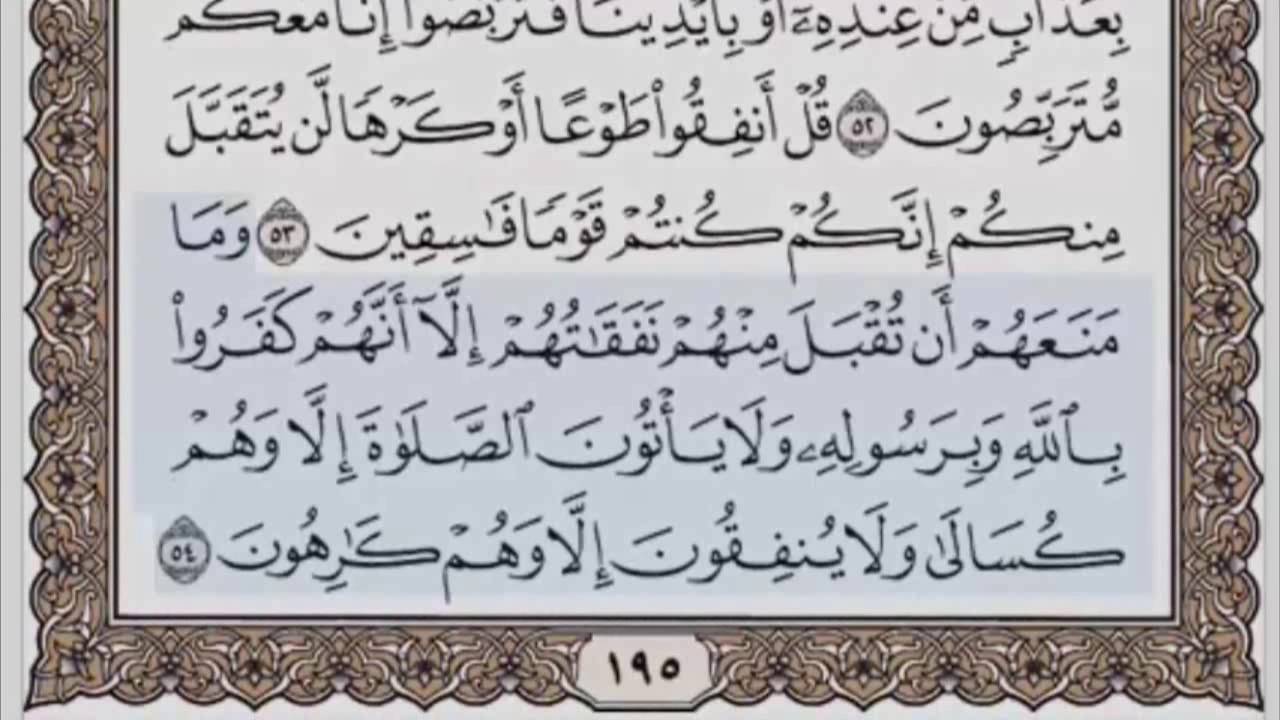 بِعَذَابٍ مِّنْ عِندِهِۦٓ أَوْ بِأَيْدِينَا فَتَرَبَّصُوٓا۟ إِنَّا مَعَكُم
مُّتَرَبِّصُونَ ٥٢ قُلْ أَنفِقُوا۟ طَوْعًا أَوْ كَرْهًا لَّن يُتَقَبَّلَ
مِنكُمْ إِنَّكُمْ كُنتُمْ قَوْمًا فَـٰسِقِينَ ٥٣ وَمَا
مَنَعَهُمْ أَن تُقْبَلَ مِنْهُمْ نَفَقَـٰتُهُمْ إِلَّآ أَنَّهُمْ كَفَرُوا۟
بِٱللَّهِ وَبِرَسُولِهِۦ وَلَا يَأْتُونَ ٱلصَّلَوٰةَ إِلَّا وَهُمْ
كُسَالَىٰ وَلَا يُنفِقُونَ إِلَّا وَهُمْ كَـٰرِهُونَ ٥٤
١٩٥